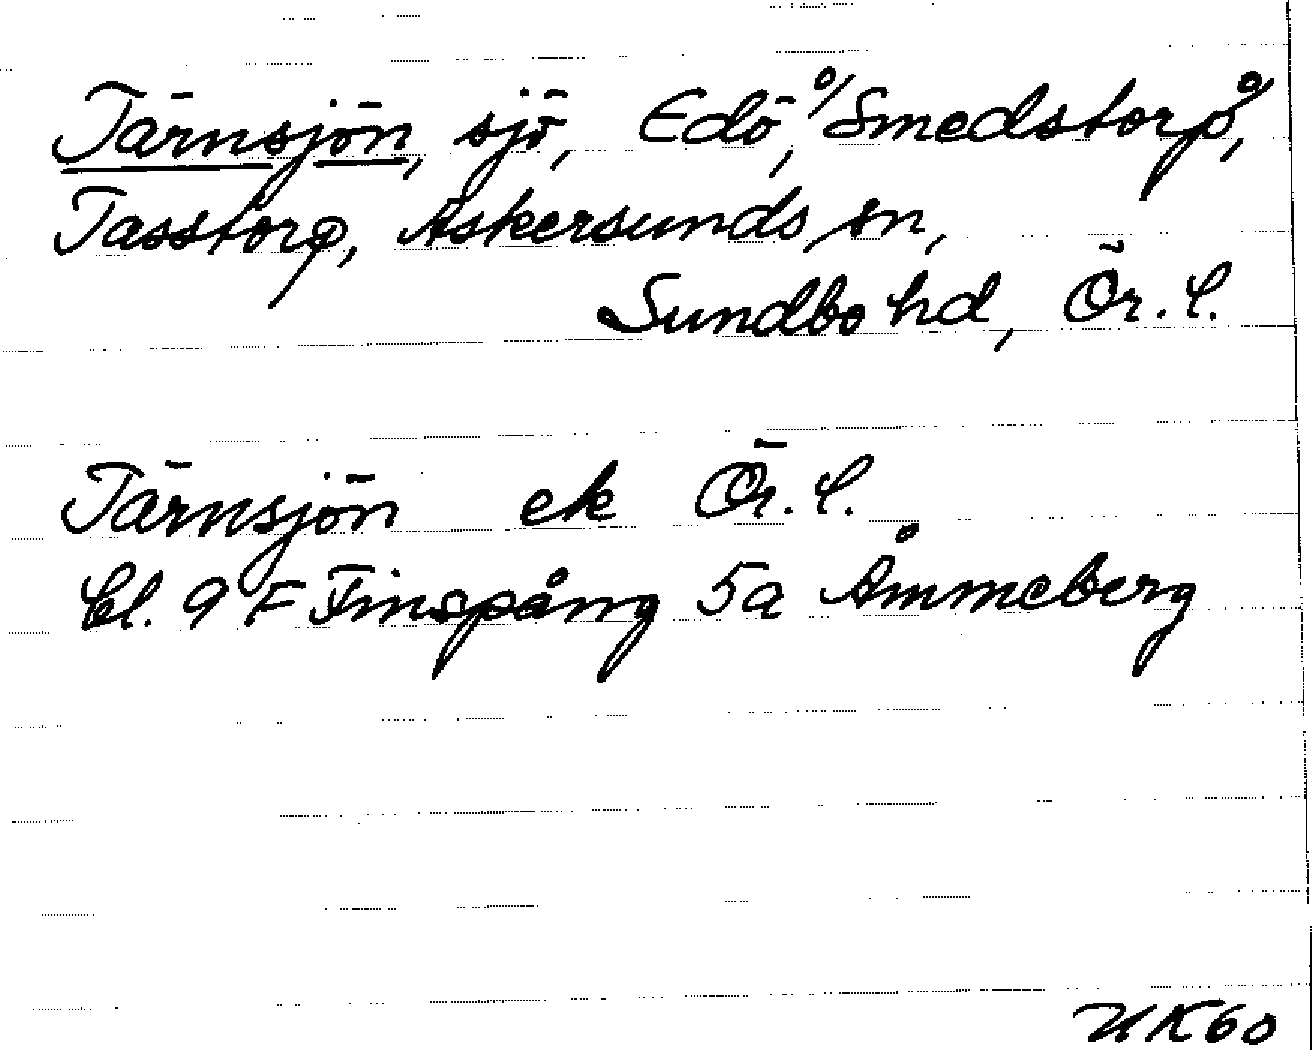 Tärnsjön, sjö, Edö, %Smedstorp%,
Tasstorp, Askersunds sn,
Sundbo hd, Ör. l.
Tärnsjön ek Ör. l.
bl. 9 F Finspång 5a Åmmeberg
UK60